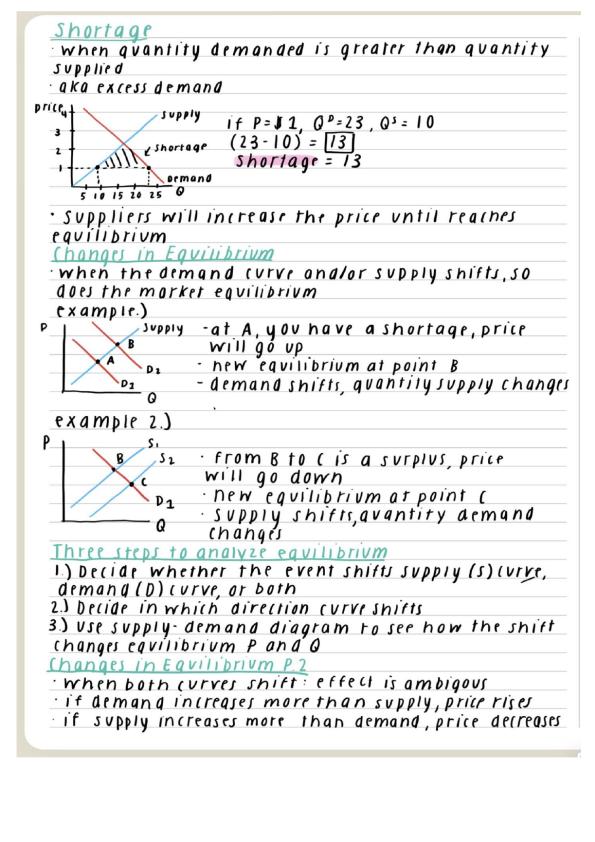 Shortage
· when quantity demanded is greater than quantity
supplied
· aka excess demand
price
4
3
2
1
supply
shortage
Demand
5 10 15 20 25 Q
if P=$1, Qᴰ=23, Qˢ=10
(23-10) = 13
shortage = 13
· Suppliers will increase the price until reaches
equilibrium
Changes in Equilibrium
· when the demand curve and/or supply shifts, so
does the market equilibrium
example.)
P
Supply
B
A
D2
D1
Q
- at A, you have a shortage, price
will go up
- new equilibrium at point B
- demand shifts, quantity supply changes
example 2.)
P
S1
S2
B
C
D1
Q
· from B to C is a surplus, price
will go down
· new equilibrium at point C
· supply shifts, quantity demand
changes
Three steps to analyze equilibrium
1.) Decide whether the event shifts supply (S) curve,
demand (D) curve, or both
2.) Decide in which direction curve shifts
3.) use supply-demand diagram to see how the shift
changes equilibrium P and Q
Changes in Equilibrium P.2
· when both curves shift: effect is ambigous
· if demand increases more than supply, price rises
· if supply increases more than demand, price decreases